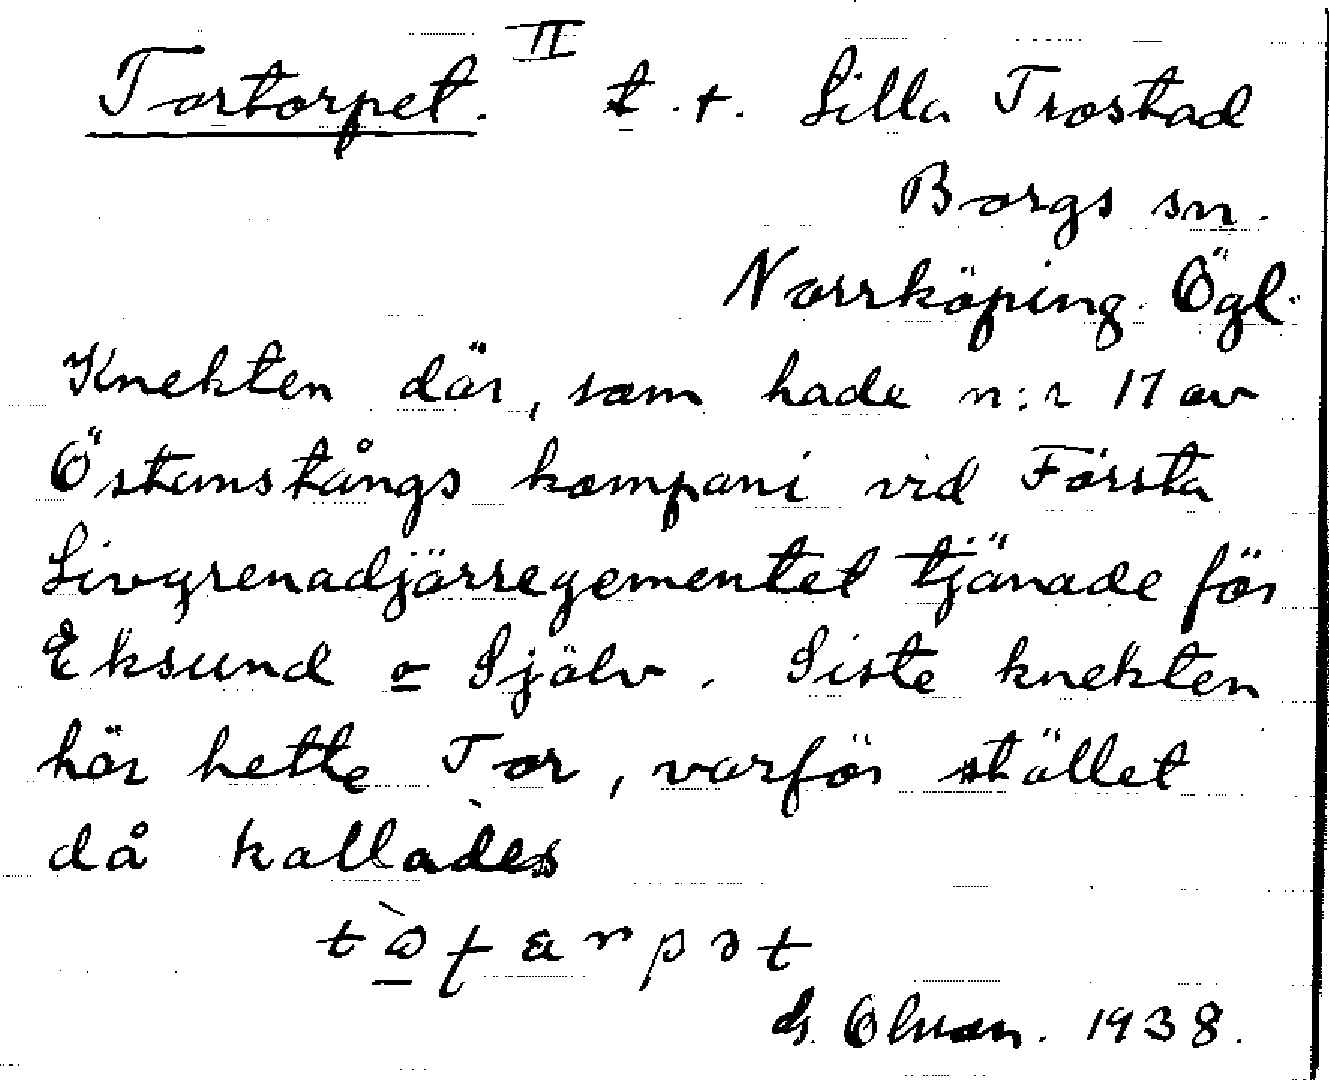 Tortorpet. II t. t. Lilla Trostad
Borgs sn.
Norrköping. Ögl.
Knekten där, som hade n:r 17 av
Östanstångs kompani vid Första
Livgrenadjärregementet tjänade för
Eksund o Själv. Siste knekten
här hette Tor, varför stället
då kallades
1938.